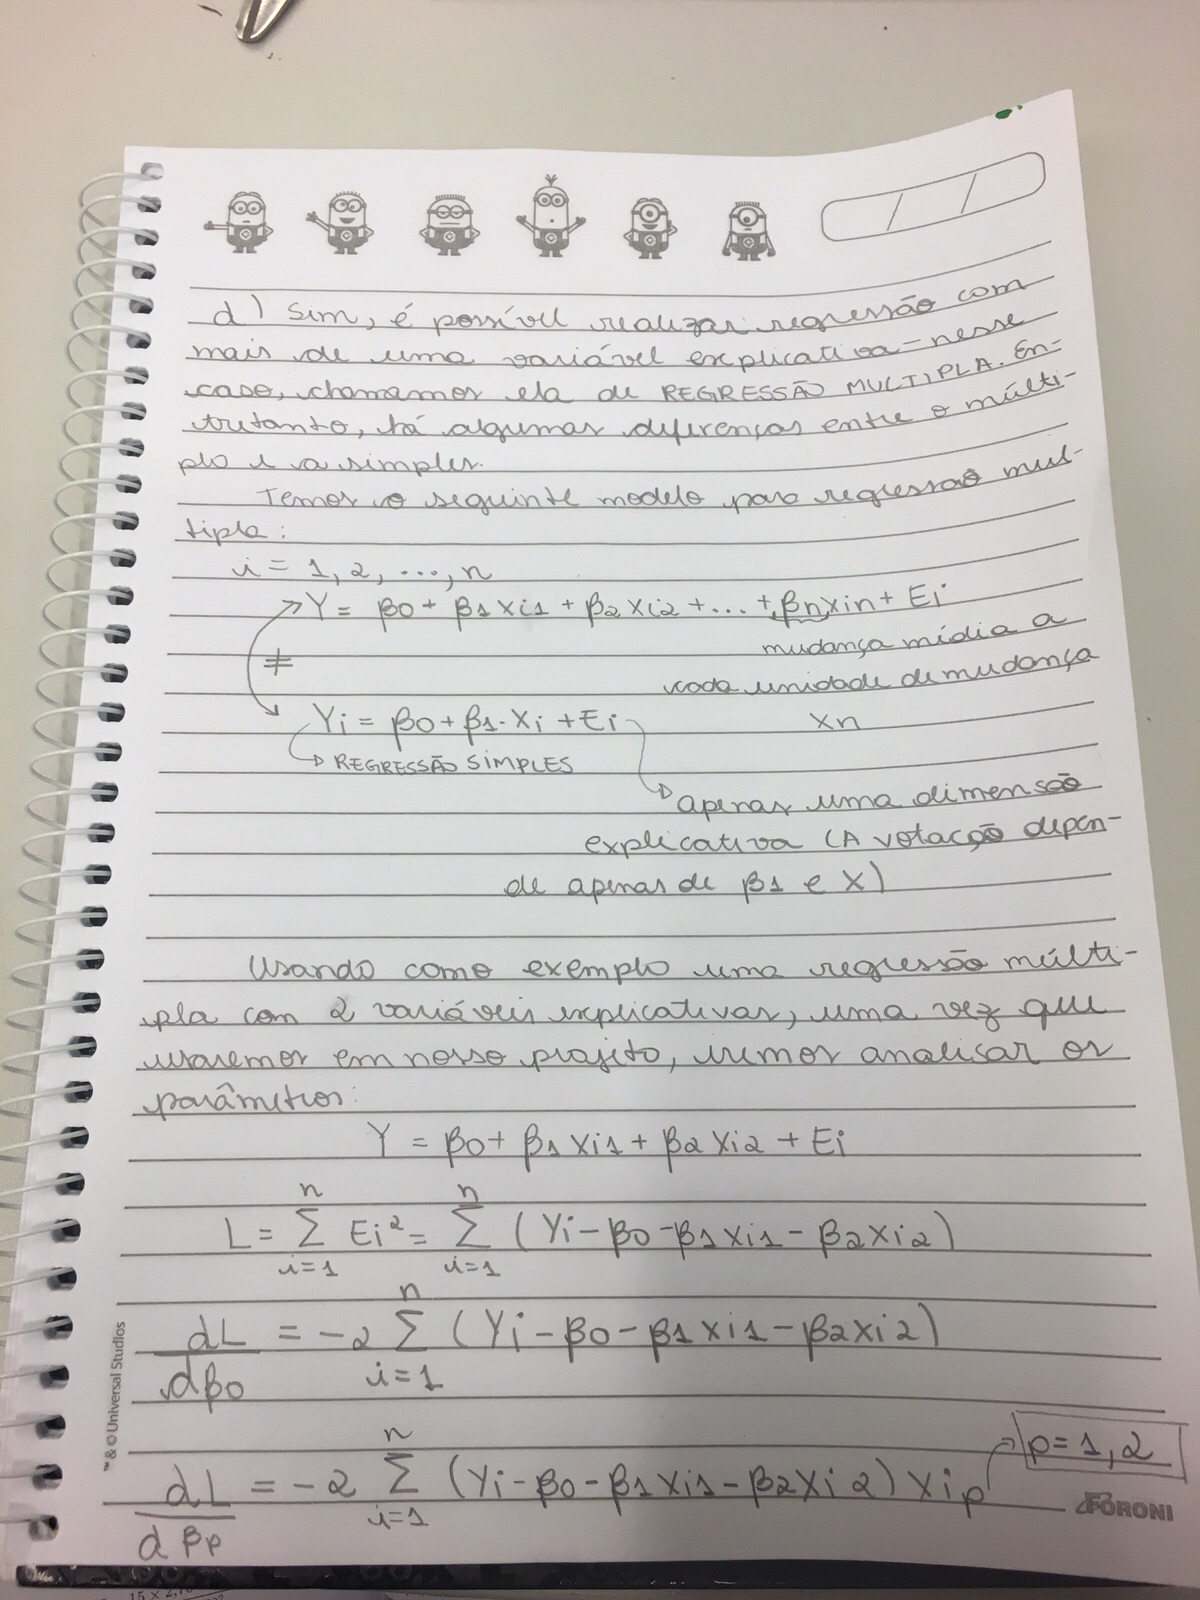 d) Sim, é possível realizar regressão com
mais de uma variável explicativa - nesse
caso, chamamos ela de REGRESSÃO MULTIPLA. En-
tretanto, há algumas diferenças entre o múlti-
plo e a simples.
Temos o seguinte modelo para regressão mul-
tipla:
i = 1, 2, ..., n
Y = β0 + β1 Xi1 + β2 Xi2 + ... + βn Xin + Ei
mudança média a
≠
cada unidade de mudança
Xn
Yi = β0 + β1 . Xi + Ei
REGRESSÃO SIMPLES
apenas uma dimensão
explicativa (A votação depen-
de apenas de β1 e X)
Usando como exemplo uma regressão múlti-
pla com 2 variáveis explicativas, uma vez que
usaremos em nosso projeto, iremos analisar os
parâmetros:
Y = β0 + β1 Xi1 + β2 Xi2 + Ei
L = n∑i=1 Ei² = n∑i=1 (Yi - β0 - β1 Xi1 - β2 Xi2)
dL/dβ0 = -2 n∑i=1 (Yi - β0 - β1 Xi1 - β2 Xi2)
dL/dβp = -2 n∑i=1 (Yi - β0 - β1 Xi1 - β2 Xi2) Xip
p = 1, 2
FORONI
™ & © Universal Studios